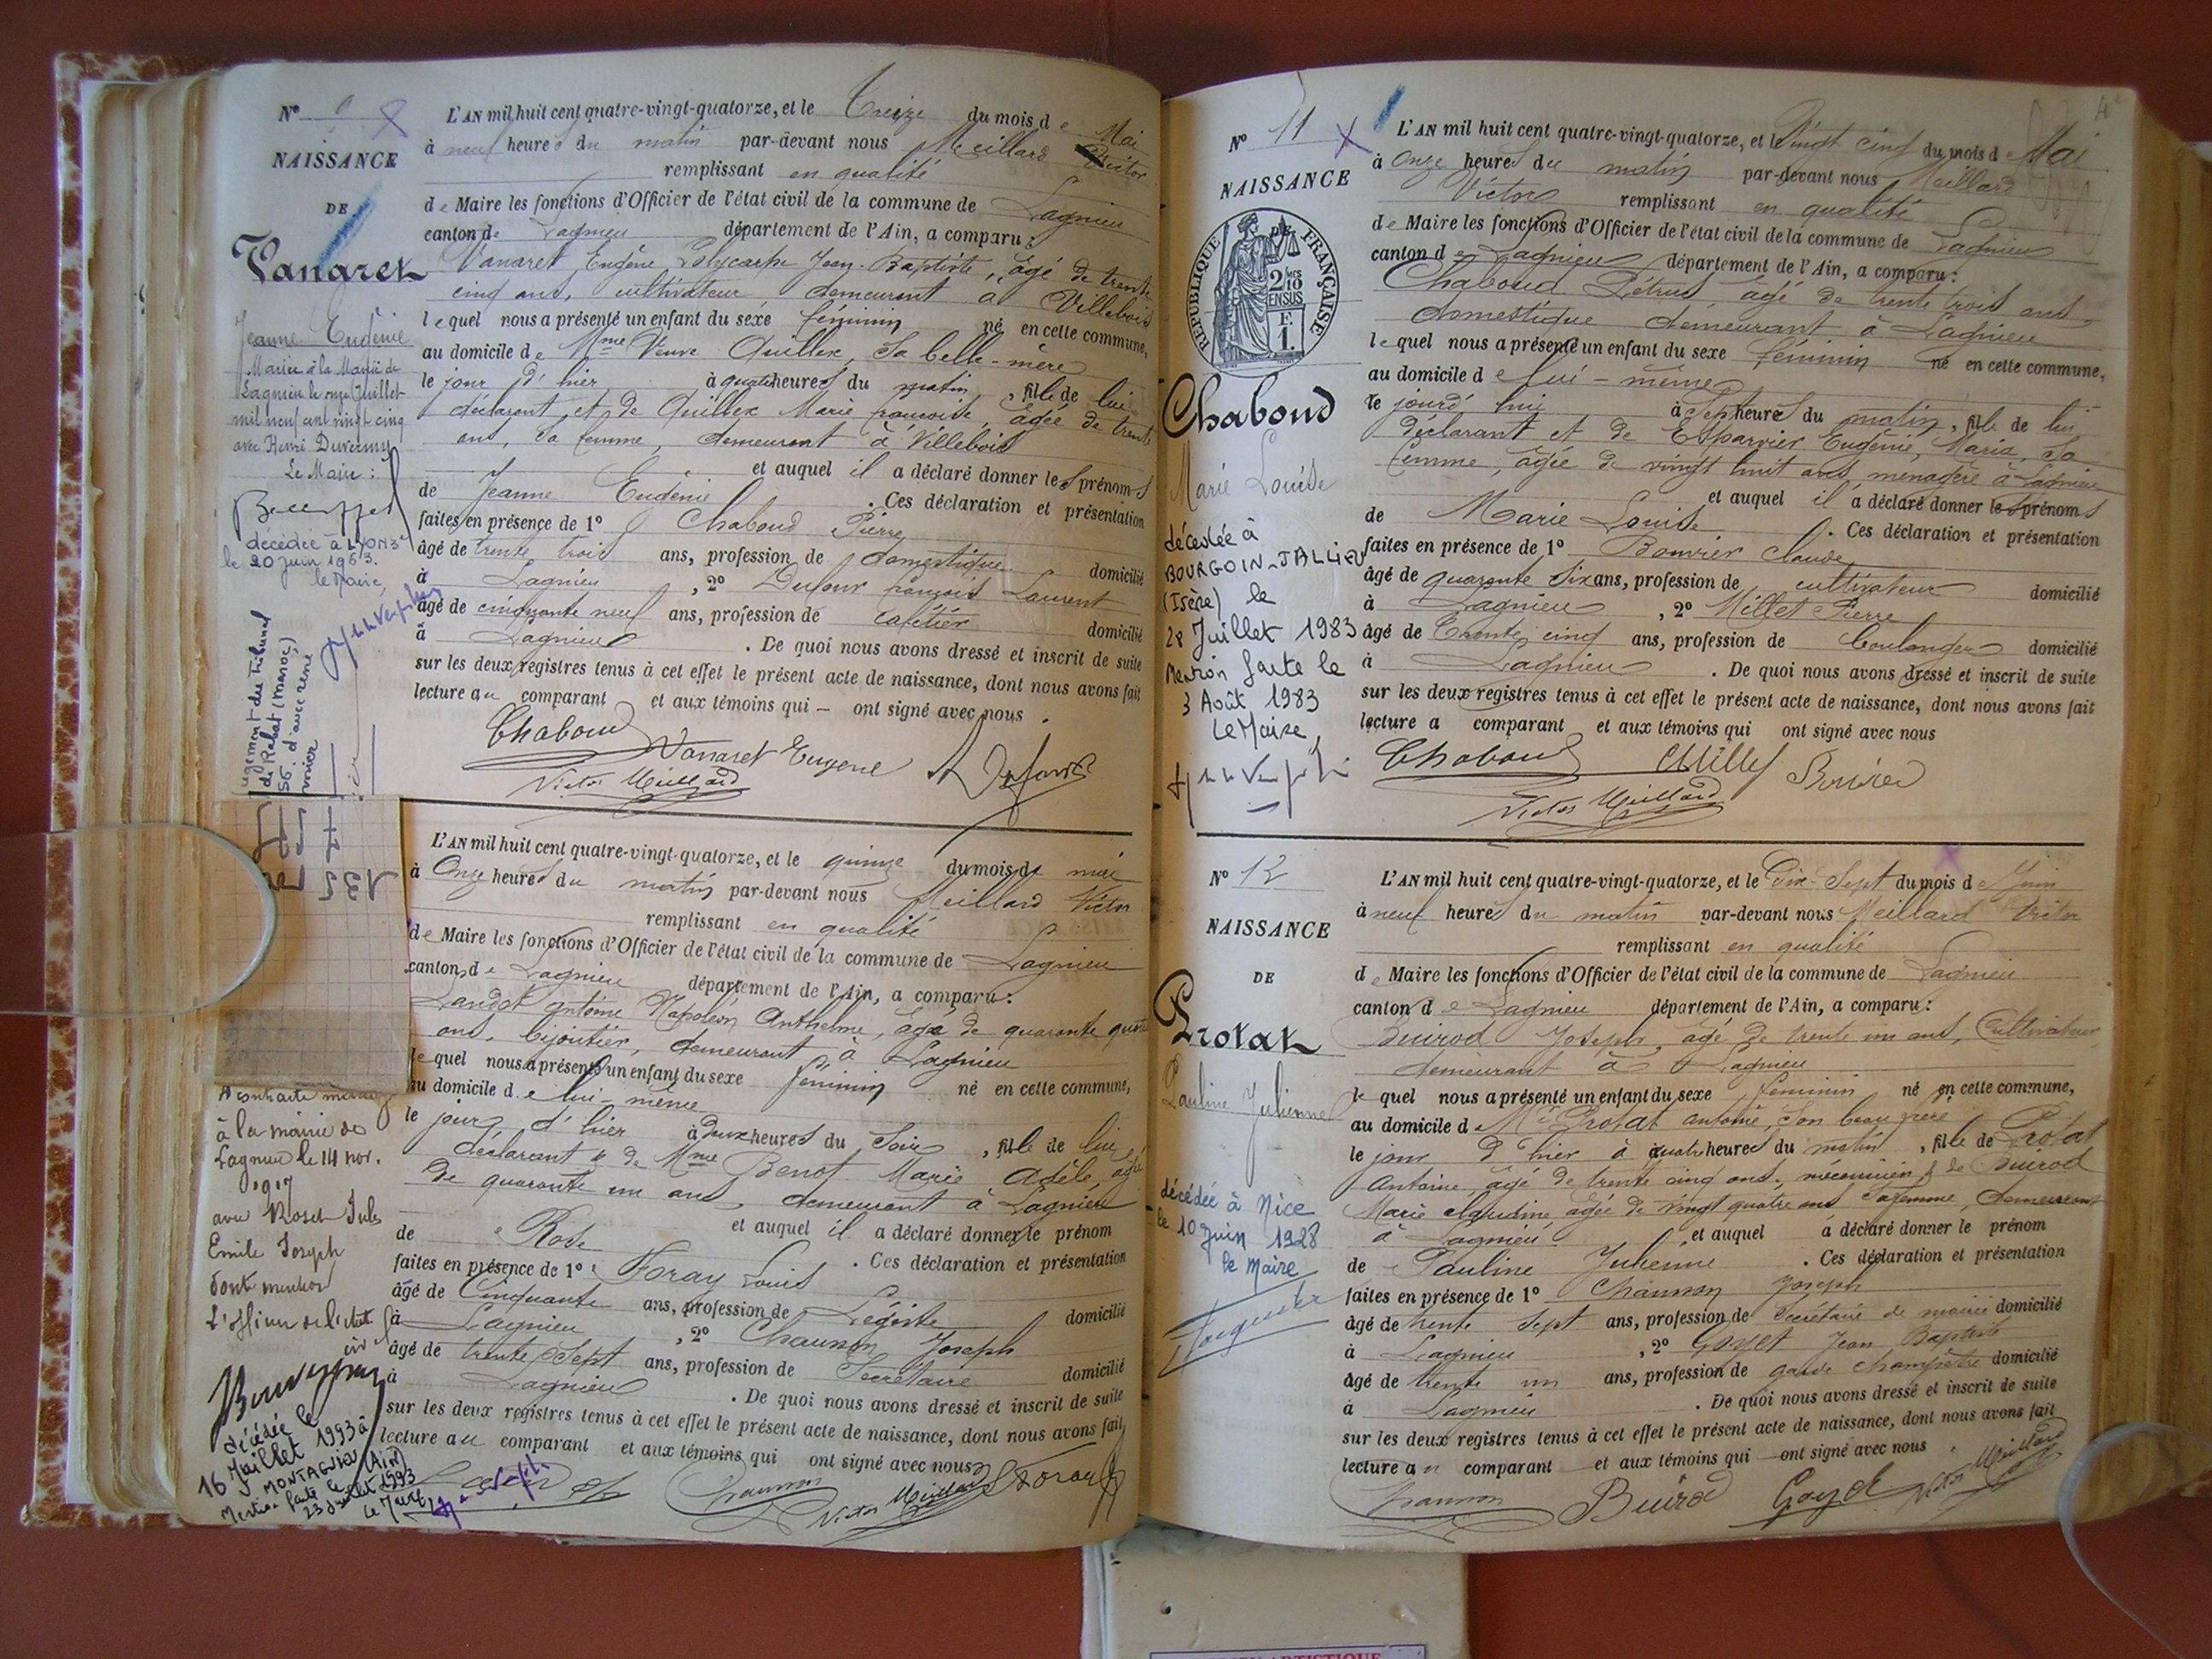 N° 9
NAISSANCE
DE
Vanaret
Jeanne Eugénie
Mariée à la Mairie de
Lagnieu le onze Juillet
mil neuf cent vingt cinq
avec Henri Duvernay
Le Maire :
décédée à LYON 3e
le 20 juin 1963.
le Maire,
jugement du Tribunal
de Rabat (Maroc)
L'AN mil huit cent quatre-vingt-quatorze, et le Treize du mois de Mai
à neuf heures du matin par-devant nous Meillard Victor
remplissant en qualité
de Maire les fonctions d'Officier de l'état civil de la commune de Lagnieu
canton de Lagnieu département de l'Ain, a comparu :
Vanaret Eugène Polycarpe Jean-Baptiste, âgé de trente
cinq ans, cultivateur demeurant à Villebois
lequel nous a présenté un enfant du sexe féminin né en cette commune,
au domicile de Mme Veuve Quillex, sa belle-mère
le jour d'hier à quatre heures du matin, fille de lui
déclarant et de Quillex Marie françoise, âgée de trente
ans, sa femme, demeurant à Villebois
et auquel il a déclaré donner les prénoms
de Jeanne Eugénie . Ces déclaration et présentation
faites en présence de 1° Chaboud Pierre
âgé de trente trois ans, profession de domestique domicilié
à Lagnieu , 2° Dufour françois Laurent
âgé de cinquante neuf ans, profession de cafetier domicilié
à Lagnieu . De quoi nous avons dressé et inscrit de suite
sur les deux registres tenus à cet effet le présent acte de naissance, dont nous avons fait
lecture au comparant et aux témoins qui — ont signé avec nous .
Chaboud Vanaret Eugene Dufour
Victor Meillard
135
A contracté mariage
à la mairie de
Lagnieu le 14 nov.
avec Rosch Jules
Emile Joseph
dont mention
L'officier de l'état
civil
décédée le
16 Juillet 1993 à
MONTAGNIEU (Ain)
Mention faite le
23 juillet 1993
Le Maire
L'AN mil huit cent quatre-vingt-quatorze, et le quinze du mois de mai
à Onze heures du matin par-devant nous Meillard Victor
remplissant en qualité
de Maire les fonctions d'Officier de l'état civil de la commune de Lagnieu
canton de Lagnieu département de l'Ain, a comparu :
Landot Antoine Napoléon Anthelme, âgé de quarante quatre
ans, bijoutier, demeurant à Lagnieu
lequel nous a présenté un enfant du sexe féminin né en cette commune,
au domicile de lui-même
le jour d'hier à Deux heures du Soir, fille de lui
déclarant & de Mme Benot Marie Adèle, âgée
de quarante un ans, demeurant à Lagnieu
et auquel il a déclaré donner le prénom
de Rose . Ces déclaration et présentation
faites en présence de 1° Foray Louis
âgé de Cinquante ans, profession de Légiste domicilié
à Lagnieu , 2° Chaunon Joseph
âgé de trente Sept ans, profession de Secrétaire domicilié
à Lagnieu . De quoi nous avons dressé et inscrit de suite
sur les deux registres tenus à cet effet le présent acte de naissance, dont nous avons fait
lecture au comparant et aux témoins qui ont signé avec nous
Chaunon Victor Meillard Foray
N° 11
NAISSANCE
DE
RÉPUBLIQUE FRANÇAISE
2 MES
10
EN SUS
F.
1.
Chaboud
Marie Louise
décédée à
BOURGOIN-JALLIEU
(Isère) le
28 Juillet 1983
Mention faite le
3 Août 1983
Le Maire,
L'AN mil huit cent quatre-vingt-quatorze, et le Vingt cinq du mois de Mai
à Onze heures du matin par-devant nous Meillard
Victor remplissant en qualité
de Maire les fonctions d'Officier de l'état civil de la commune de Lagnieu
canton de Lagnieu département de l'Ain, a comparu :
Chaboud Pétrus, âgé de trente trois ans
domestique demeurant à Lagnieu
lequel nous a présenté un enfant du sexe féminin né en cette commune,
au domicile de lui-même
le jourd'hui à Sept heures du matin, fille de lui
déclarant et de Esparvier Eugénie, Maria, sa
femme, âgée de vingt huit ans, ménagère à Lagnieu
et auquel il a déclaré donner les prénoms
de Marie Louise . Ces déclaration et présentation
faites en présence de 1° Bouvier Claude
âgé de quarante Six ans, profession de cultivateur domicilié
à Lagnieu , 2° Millet Pierre
âgé de Trente cinq ans, profession de boulanger domicilié
à Lagnieu . De quoi nous avons dressé et inscrit de suite
sur les deux registres tenus à cet effet le présent acte de naissance, dont nous avons fait
lecture a comparant et aux témoins qui ont signé avec nous
Chaboud Millet Bouvier
Victor Meillard
N° 12
NAISSANCE
DE
Protat
Pauline Julienne
décédée à Nice
le 10 Juin 1928
le Maire
L'AN mil huit cent quatre-vingt-quatorze, et le Dix-Sept du mois de Juin
à neuf heures du matin par-devant nous Meillard Victor
remplissant en qualité
de Maire les fonctions d'Officier de l'état civil de la commune de Lagnieu
canton de Lagnieu département de l'Ain, a comparu :
Buirod Joseph, âgé de trente un ans, Cultivateur
demeurant à Lagnieu
lequel nous a présenté un enfant du sexe féminin né en cette commune,
au domicile de Mr Protat antoine, son beau frère
le jour d'hier à quatre heures du matin, fille de Protat
Antoine, âgé de trente cinq ans, mécanicien & de Buirod
Marie claudine âgée de vingt quatre ans sa femme, demeurant
à Lagnieu et auquel a déclaré donner le prénom
de Pauline Julienne . Ces déclaration et présentation
faites en présence de 1° Chaunon Joseph
âgé de trente Sept ans, profession de Secrétaire de mairie domicilié
à Lagnieu , 2° Goyet Jean Baptiste
âgé de trente un ans, profession de garde champêtre domicilié
à Lagnieu . De quoi nous avons dressé et inscrit de suite
sur les deux registres tenus à cet effet le présent acte de naissance, dont nous avons fait
lecture au comparant et aux témoins qui — ont signé avec nous .
Chaunon Buirod Goyet Victor Meillard